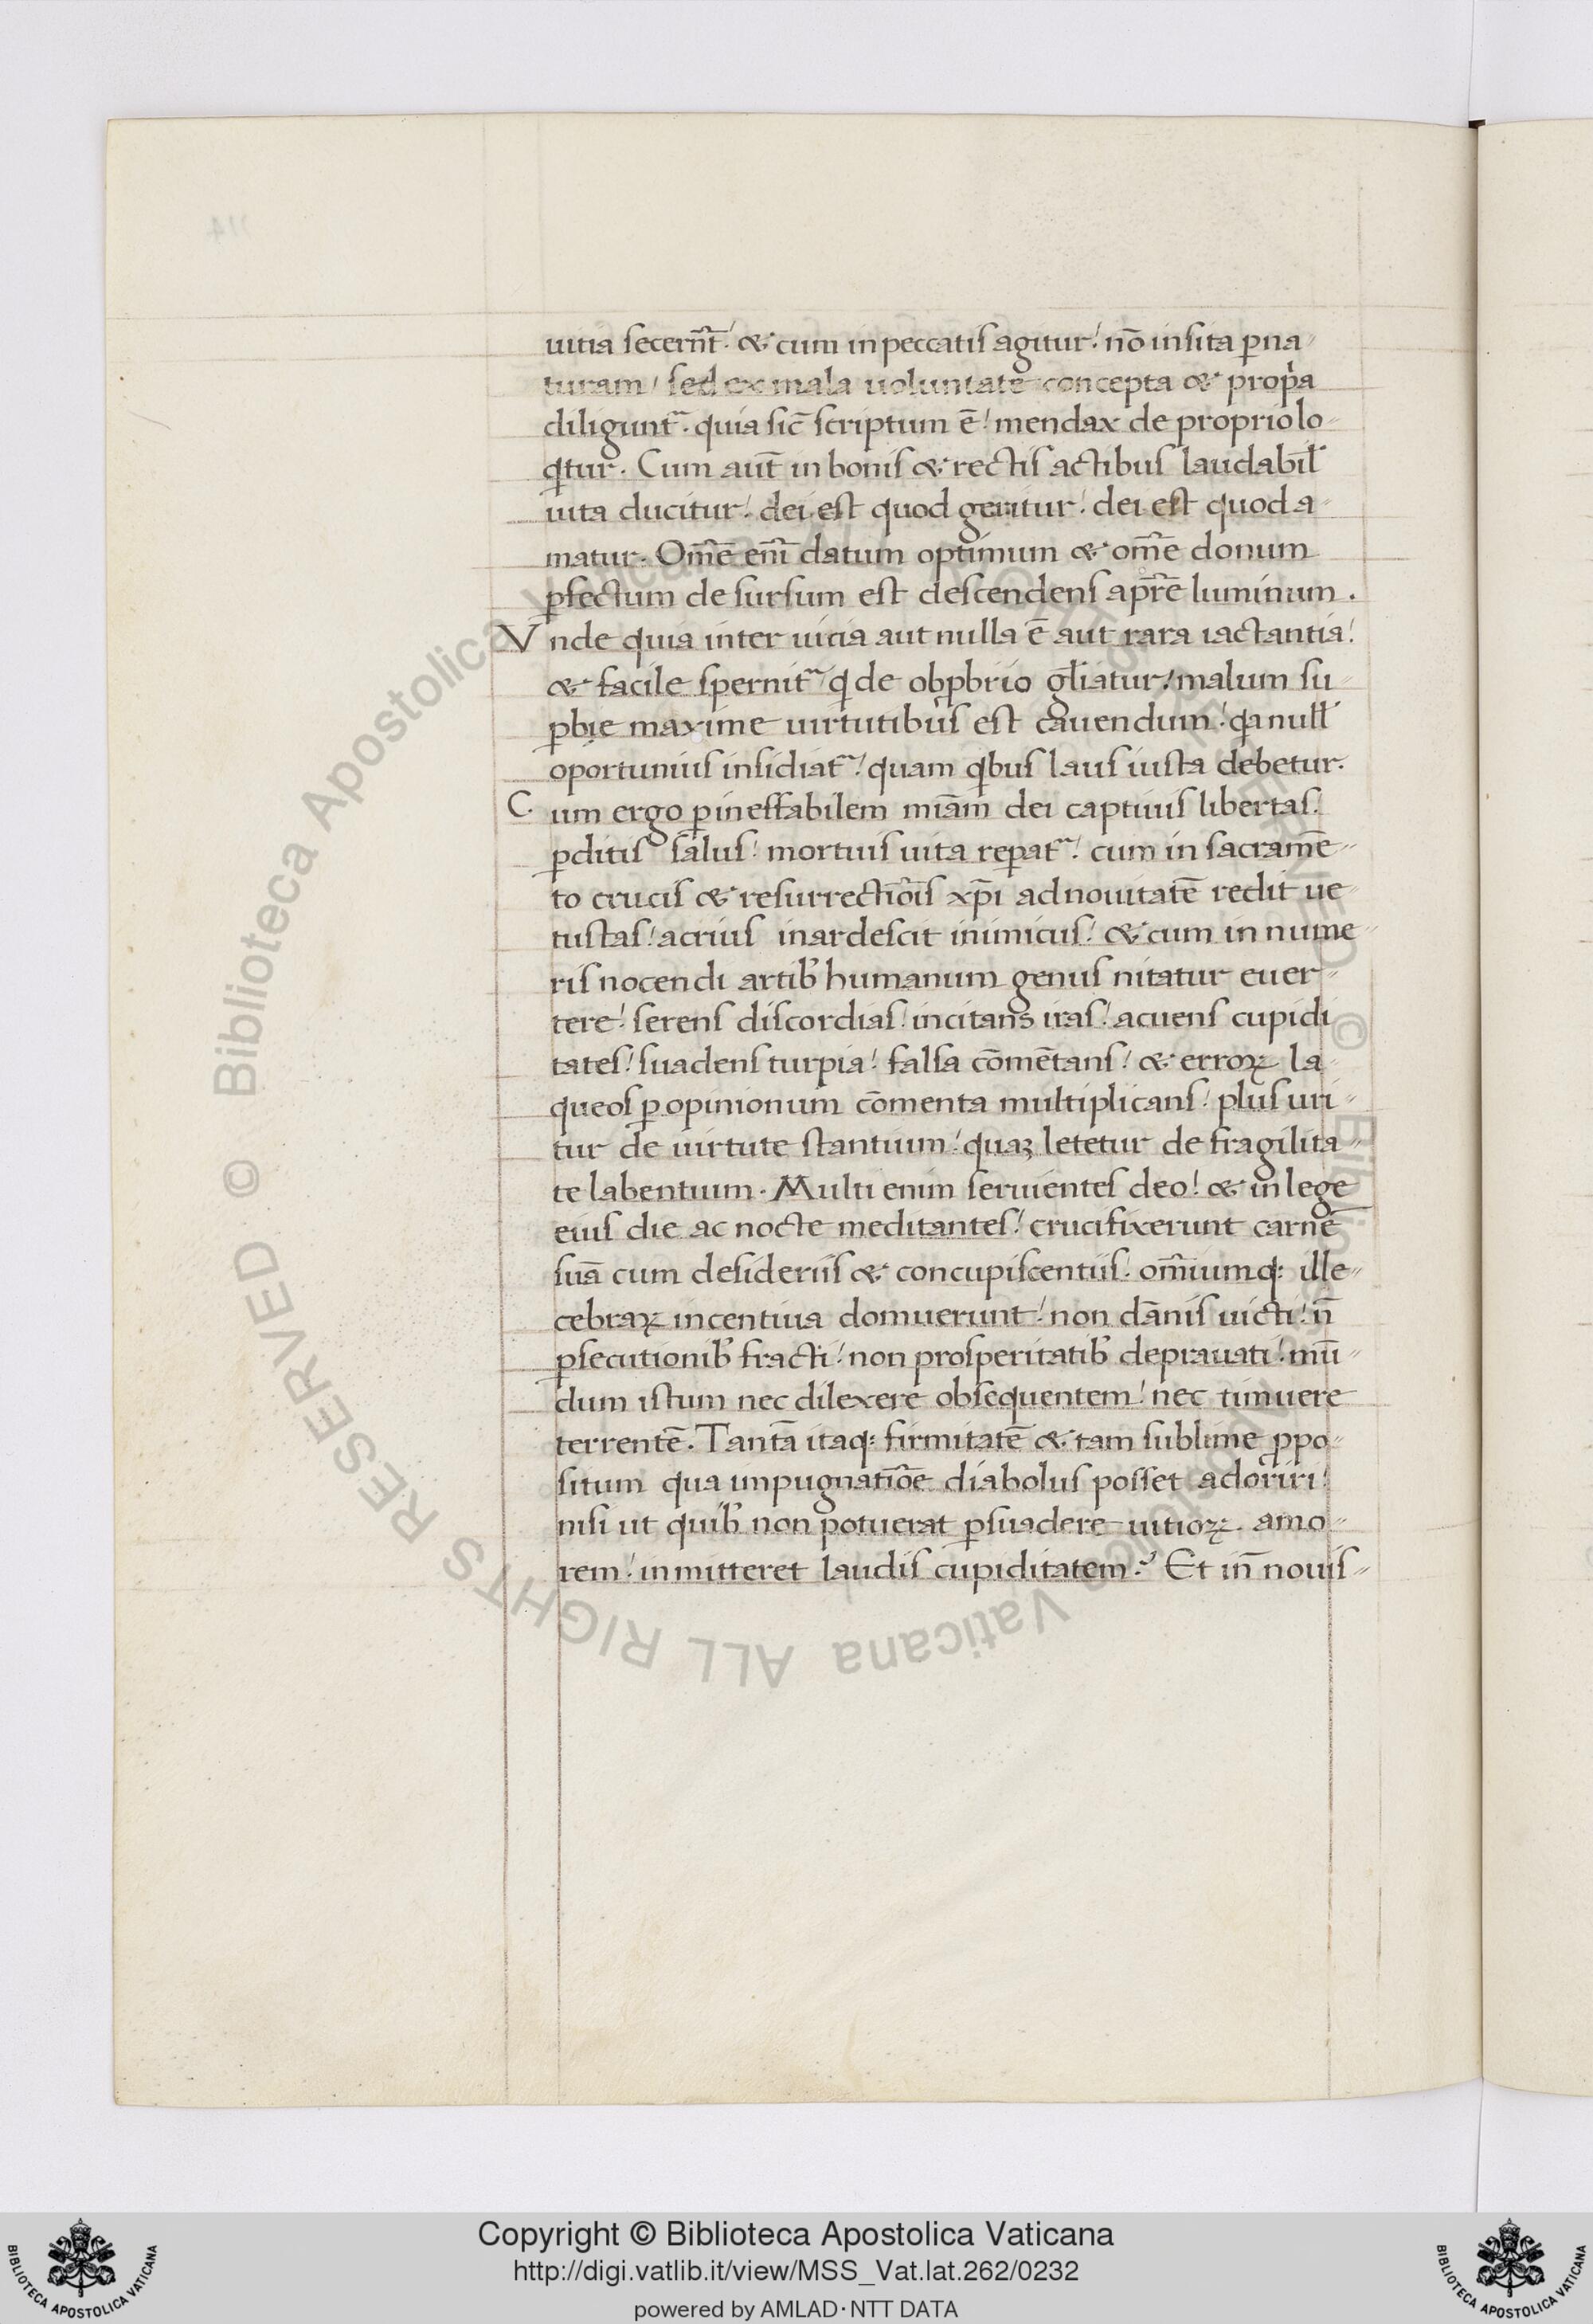 uitia secern̄t. & cum in peccatis agitur. nō insita ꝑ na-
turam, sed ex mala uoluntate concepta & propͥa
diligunt᷑. quia sic̄ scriptum ē. mendax de proprio lo-
qͥtur. Cum aut̄ in bonis & rectis actibus laudabil᷑
uita ducitur. dei est quod geritur. dei est quod a-
matur. Om̄e em̄ datum optimum & om̄e donum
ꝑfectum de sursum est descendens a pr̄e luminum.
Vnde quia inter uicia aut nulla ē aut rara iactantia.
& facile spernit᷑ qͥ de obꝓbrio gl̄iatur. malum su-
ꝑbie maxime uirtutibus est cauendum. qͣ null᷑
oportunius insidiat᷑. quam qͥbus laus iusta debetur.
C. um ergo ꝑ ineffabilem miām dei captiuis libertas.
ꝑditis salus. mortuis uita reꝑat᷑. cum in sacramē-
to crucis & resurrectiōis xp̄i ad nouitatē redit ue-
tustas. acrius inardescit inimicus. & cum in nume-
ris nocendi artib᷒ humanum genus nitatur euer-
tere. serens discordias. incitans iras. acuens cupidi
tates. suadens turpia. falsa cōmētans. & erroꝝ la-
queos ꝑ opinionum cōmenta multiplicans. plus uri-
tur de uirtute stantium. quaꝫ letetur de fragilita-
te labentium. Multi enim seruientes deo. & in lege
eius die ac nocte meditantes. crucifixerunt carnē
suā cum desideriis & concupiscentiis. om̄iumq: ille-
cebraꝝ incentiua domuerunt. non dānis uicti. n̄
ꝑsecutionib᷒ fracti. non prosperitatib᷒ deprauati. mū-
dum istum nec dilexere obsequentem. nec timuere
terrentē. Tantā itaq: firmitatē & tam sublime ꝓpo-
situm qua impugnatiōe diabolus posset adoriri.
nisi ut quib᷒ non potuerat ꝑsuadere uitioꝝ amo-
rem. inmitteret laudis cupiditatem. Et in̄ nouis-
114
© Biblioteca Apostolica Vaticana ALL RIGHTS RESERVED
Copyright © Biblioteca Apostolica Vaticana
http://digi.vatlib.it/view/MSS_Vat.lat.262/0232
powered by AMLAD·NTT DATA
BIBLIOTECA APOSTOLICA VATICANA
BIBLIOTECA APOSTOLICA VATICANA